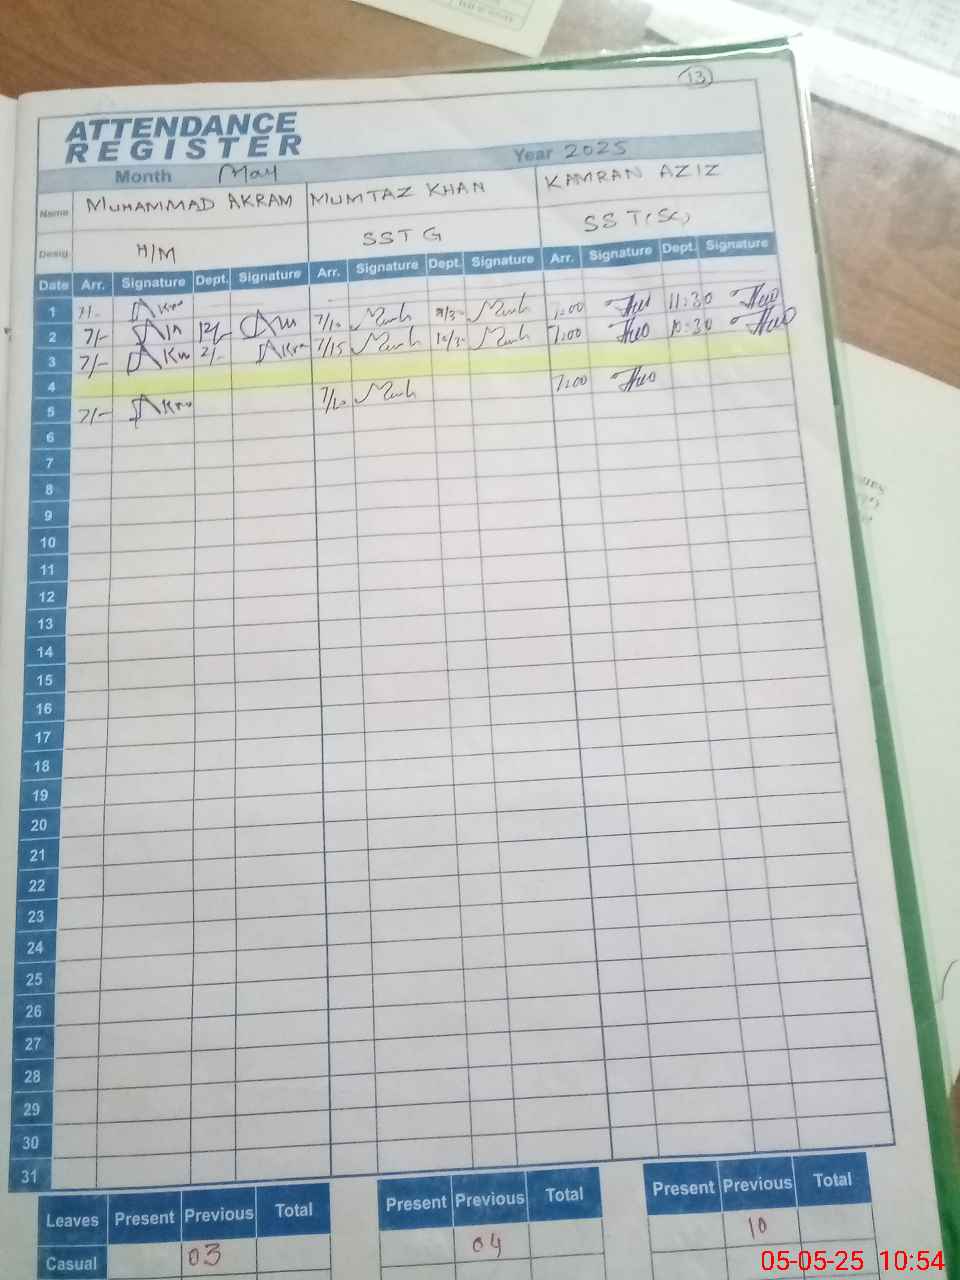 13
ATTENDANCE
REGISTER
Month May Year 2025
Name MUHAMMAD AKRAM MUMTAZ KHAN KAMRAN AZIZ
Desig. H/M SST G SST(SC)
Date Arr. Signature Dept. Signature Arr. Signature Dept. Signature Arr. Signature Dept. Signature
1 7/- 7/10 11:30
2 7/- 12/- 7/15 7:00 10:30
3 7/- 2/-
4
5 7/- 7/10 7:00
6
7
8
9
10
11
12
13
14
15
16
17
18
19
20
21
22
23
24
25
26
27
28
29
30
31
Leaves Present Previous Total Present Previous Total Present Previous Total
Casual 03 04 10
05-05-25 10:54